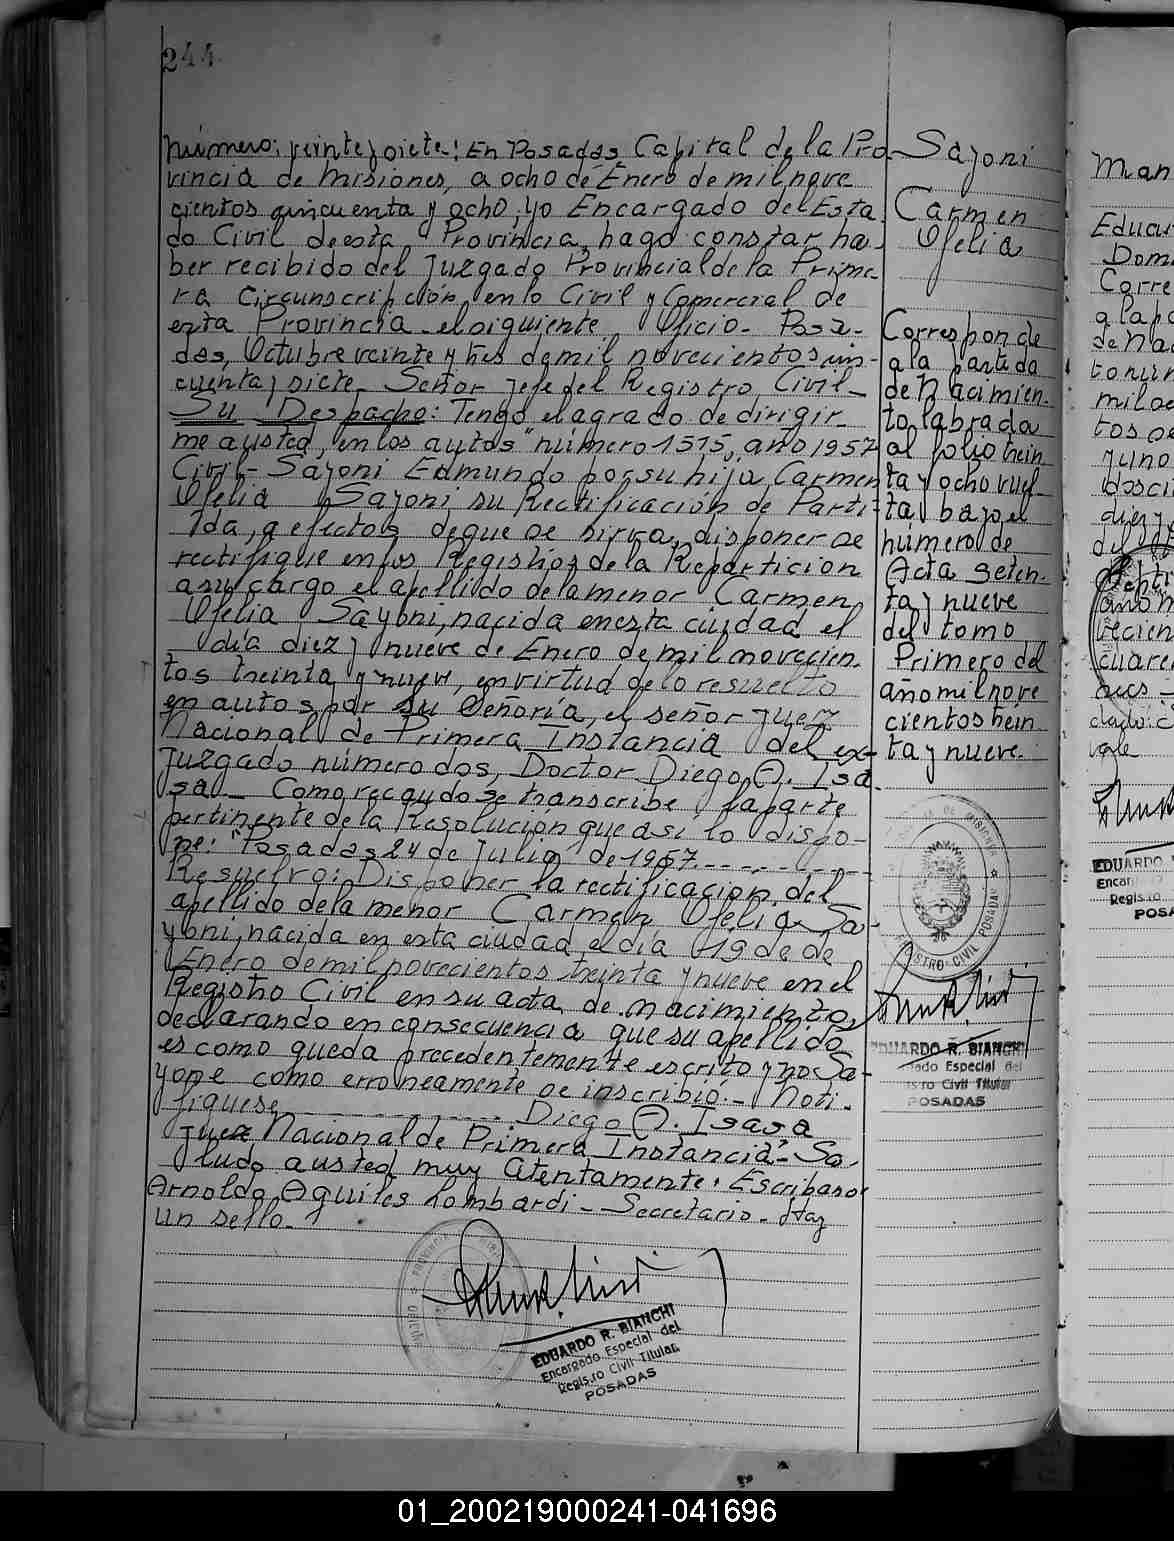 244
Número: veinte y siete: En Posadas, Capital de la Pro-
vincia de Misiones, a ocho de Enero de mil nove-
cientos cincuenta y ocho, yo Encargado del Esta-
do Civil de esta Provincia, hago constar ha-
ber recibido del Juzgado Provincial de la Prime-
ra Circunscripción en lo Civil y Comercial de
esta Provincia el siguiente Oficio- Posa-
das, Octubre veinte y tres de mil novecientos cin-
cuenta y siete- Señor Jefe del Registro Civil-
Su Despacho: Tengo el agrado de dirigir-
me a usted, en los autos "número 1575, año 1957
Civil- Sayoni Edmundo por su hija Carmen
Ofelia Sayoni, su Rectificación de Parti-
da, a efectos de que se sirva disponer se
rectifique en los Registros de la Repartición
a su cargo el apellido de la menor Carmen
Ofelia Sayoni, nacida en esta ciudad el
día diez y nueve de Enero de mil novecien-
tos treinta y nueve, en virtud de lo resuelto
en autos por Su Señoría, el señor Juez
Nacional de Primera Instancia del ex-
Juzgado número dos, Doctor Diego A. Isa-
sa- Como recaudo se transcribe la parte
pertinente de la Resolución que así lo dispo-
ne: "Posadas 24 de Julio de 1957.
Resuelvo: Disponer la rectificación del
apellido de la menor Carmen Ofelia Sa-
yoni, nacida en esta ciudad el día 19 de de
Enero de mil novecientos treinta y nueve en el
Registro Civil en su acta de nacimiento,
declarando en consecuencia que su apellido
es como queda precedentemente escrito y no Sa-
yone como erroneamente se inscribió.- Noti-
fíquese Diego A. Isasa
Juez Nacional de Primera Instancia"- Sa-
ludo a usted muy atentamente. Escribano
Arnoldo Aquiles Lombardi- Secretario- Hay
un sello-
EDUARDO R. BIANCHI
Encargado Especial del
Regis.ro Civil Titular
POSADAS
Sayoni
Carmen
Ofelia
Corresponde
a la partida
de Nacimien-
to labrada
al folio trein
ta y ocho vuel-
ta bajo el
número de
Acta seten-
ta y nueve
del tomo
Primero del
año mil nove
cientos trein
ta y nueve.
REGISTRO CIVIL POSADAS
EDUARDO R. BIANCHI
Especial del
Civil Titular
POSADAS
Man
Educa
Dom
Corre
a la pa
de Na
diez y
cuare
EDUARDO
Encar
Regis.ro
POSA
01_200219000241-041696